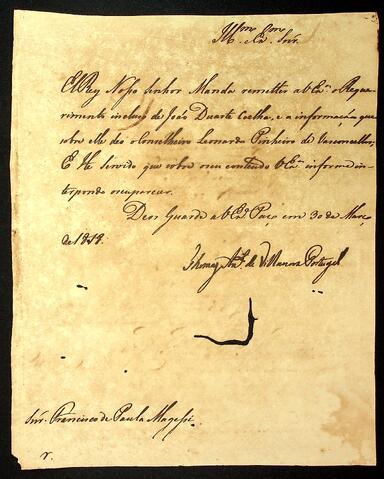 Illmo. Exmo. Snr.
ElRey Nosso Senhor Manda remetter a V Exa. o Reque
rimento incluso de João Duarte Coelho, e a informação que
sobre elle deo o Conselheiro Leonardo Pinheiro de Vasconcellos;
E He servido que sobre o seu contendo V Exa. informe in
terpondo o seu parecer.
Deos Guarde a V Exa. Paço em 30 de Março
de 1819.
Thomaz Anto. de Villanova Portugal
Snr. Francisco de Paula Magessi